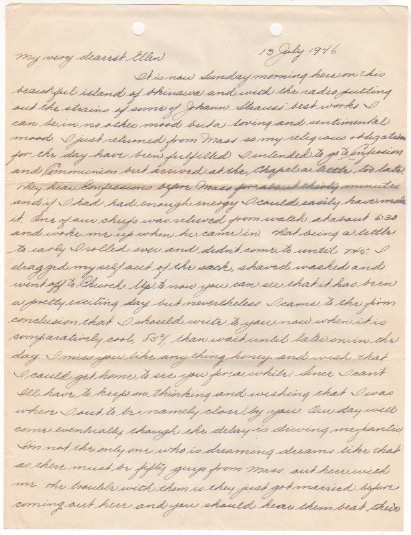 13 July 1946
My very dearest Ellen
It is now Sunday morning here on this
beautiful island of Okinawa and with the radio putting
out the strains of some of Johann Strauss' best works I
can be in no other mood but a loving and sentimental
mood. I just returned from Mass so my religious obligations
for the day have been fulfilled I intended to go to Confession
and Communion but arrived at the Chapel a little too late.
They hear Confessions before Mass for about thirty minutes
and if I had had enough energy I could easily have made
it. One of our chiefs was relieved from watch at about 6:30
and woke me up when he came in. That being a little
to early I rolled over and didn't come to until 745. I
dragged myself out of the sack, shaved washed and
went off to Church. Up to now you can see that it has been
a pretty exciting day but nevertheless I came to the firm
conclusion that I should write to you now when it is
comparatively cool, 85° than wait until later on in the
day. I miss you like anything honey and wish that
I could get home to see you for a while. Since I can't
I'll have to keep on thinking and wishing that I was
where I out to be namely close by you. Our day will
come eventually though the delay is driving me frantic
I'm not the only one who is dreaming dreams like that
as there must be fifty guys from Mass out here with
me. The trouble with them is they just got married before
coming out here and you should hear them beat their